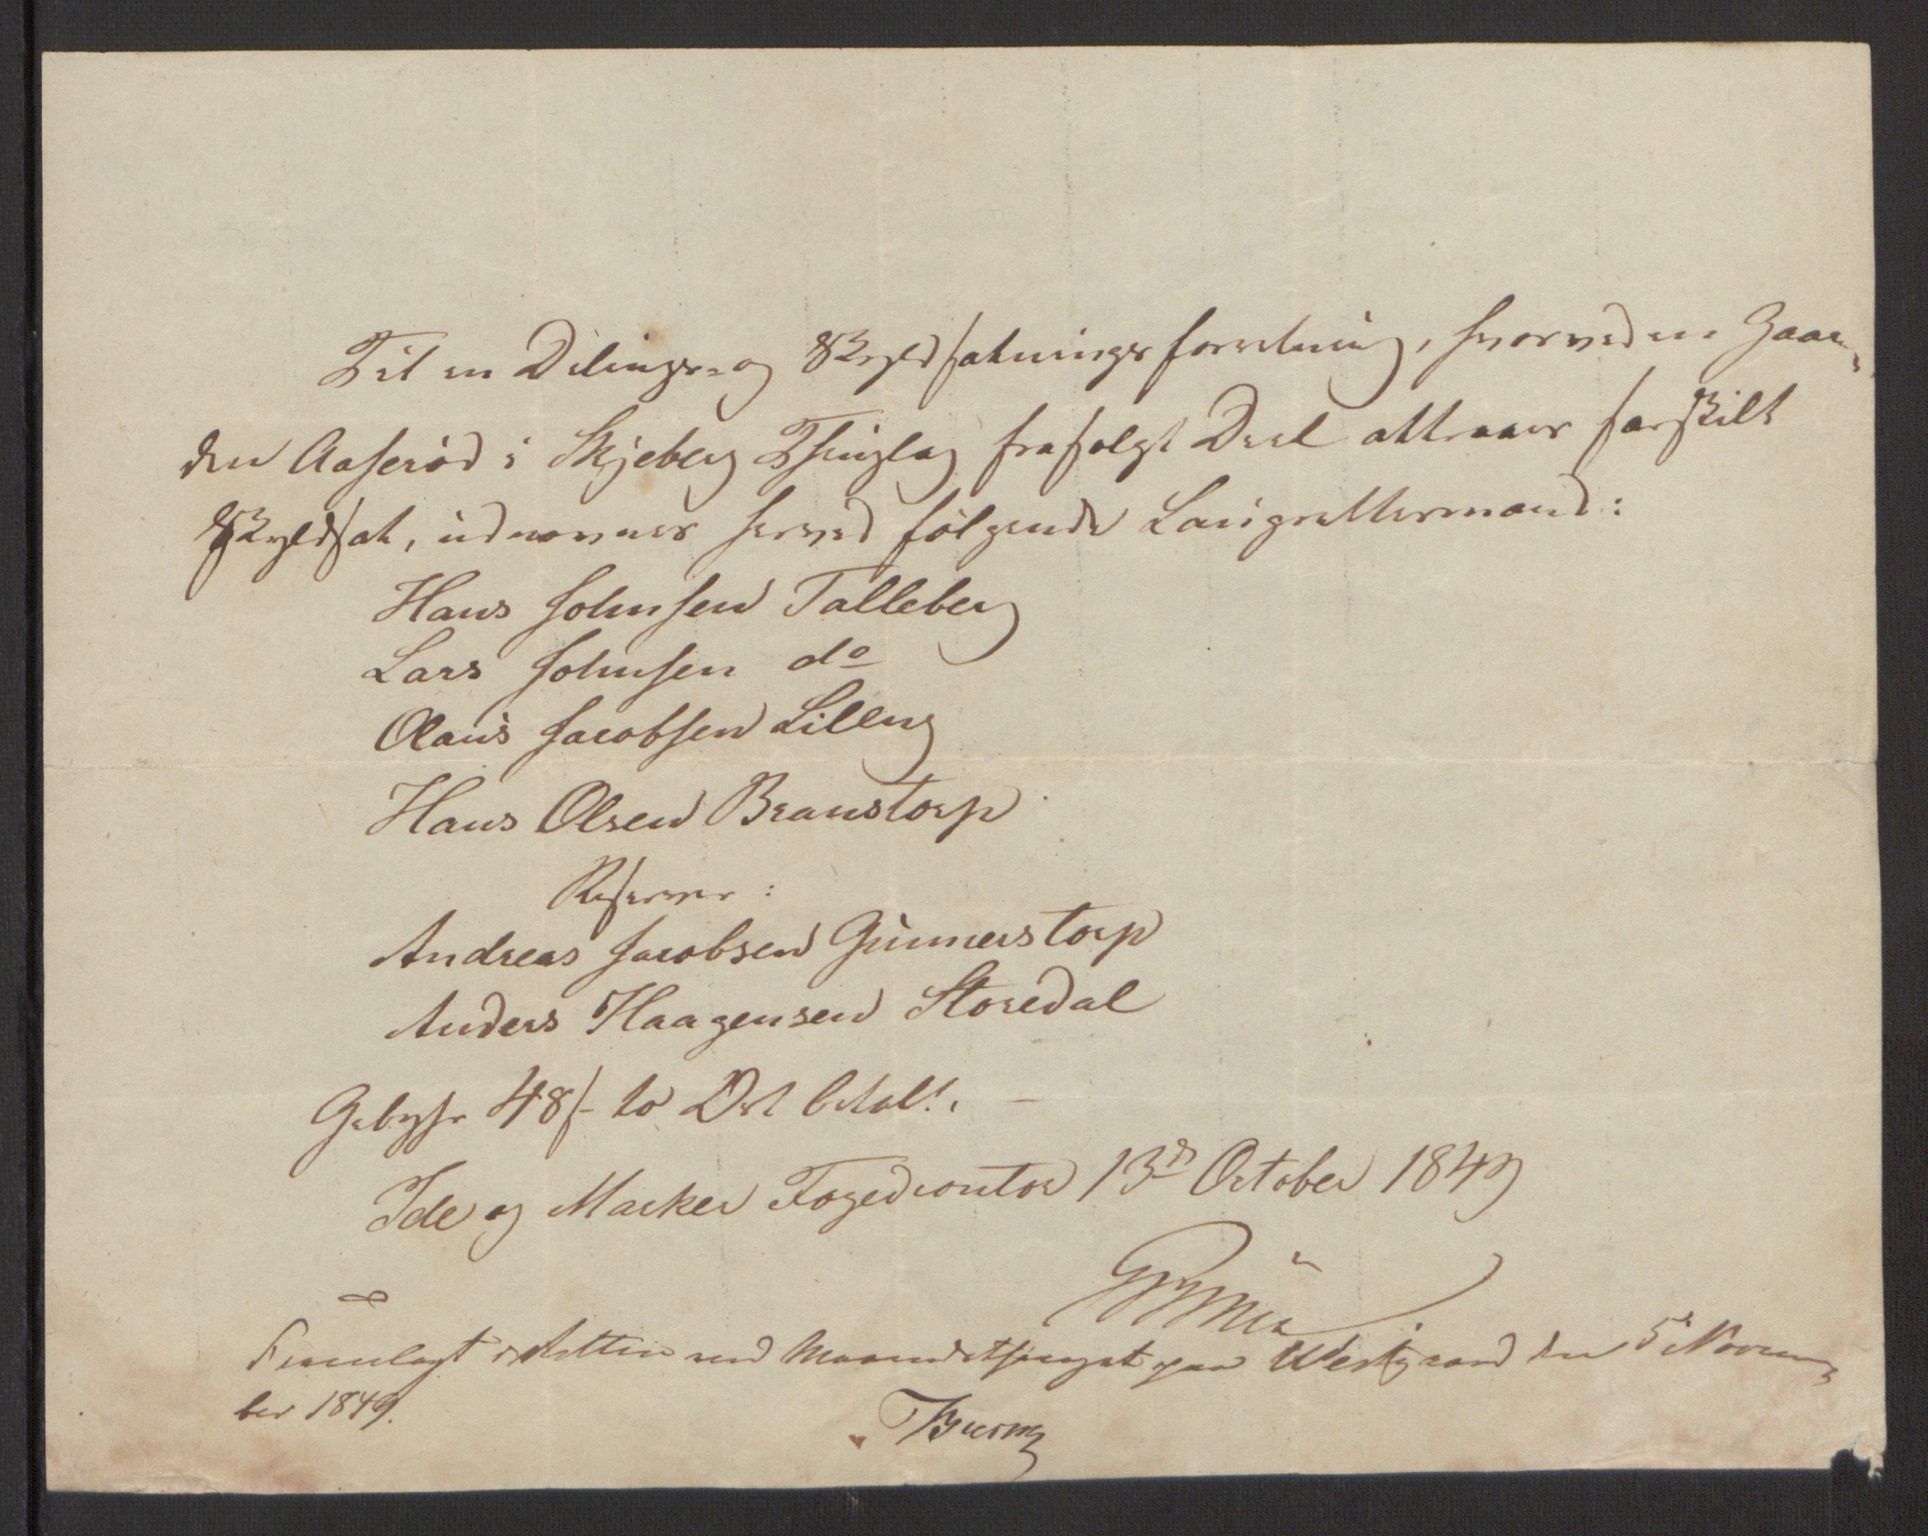 Til en Delings- og Skyldsætningsforretning, hvorved en Gaar-
den Aaserød i Skjeberg Thinglag frasolgt Deel attraaes særskilt
Skyldsat, udnævnes herved følgende Laugrettesmænd:
Hans Johnsen Talleberg
Lars Johnsen do
Olaus Jacobsen Lilleng
Hans Olsen Branstorp
Reserver:
Andreas Jacobsen Gunnerstorp
Anders Haagensen Storedal
Gebyhr 48 s to Ort betalt. —
Ide og Marker Fogedcontor 13d October 1849

Fremlagt i Retten ved Maanedsthinget paa Westgaard den 5 Novem-
ber 1849.